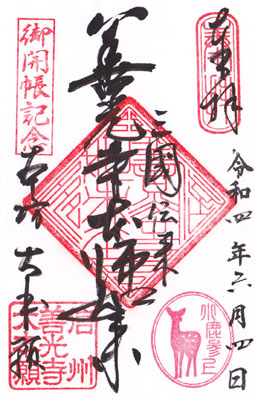 奉拝
令和四年六月四日
三國伝来
善光寺本師如来
御開帳記念
本坊 大本願
信州
善光寺
大本願
小鹿参上